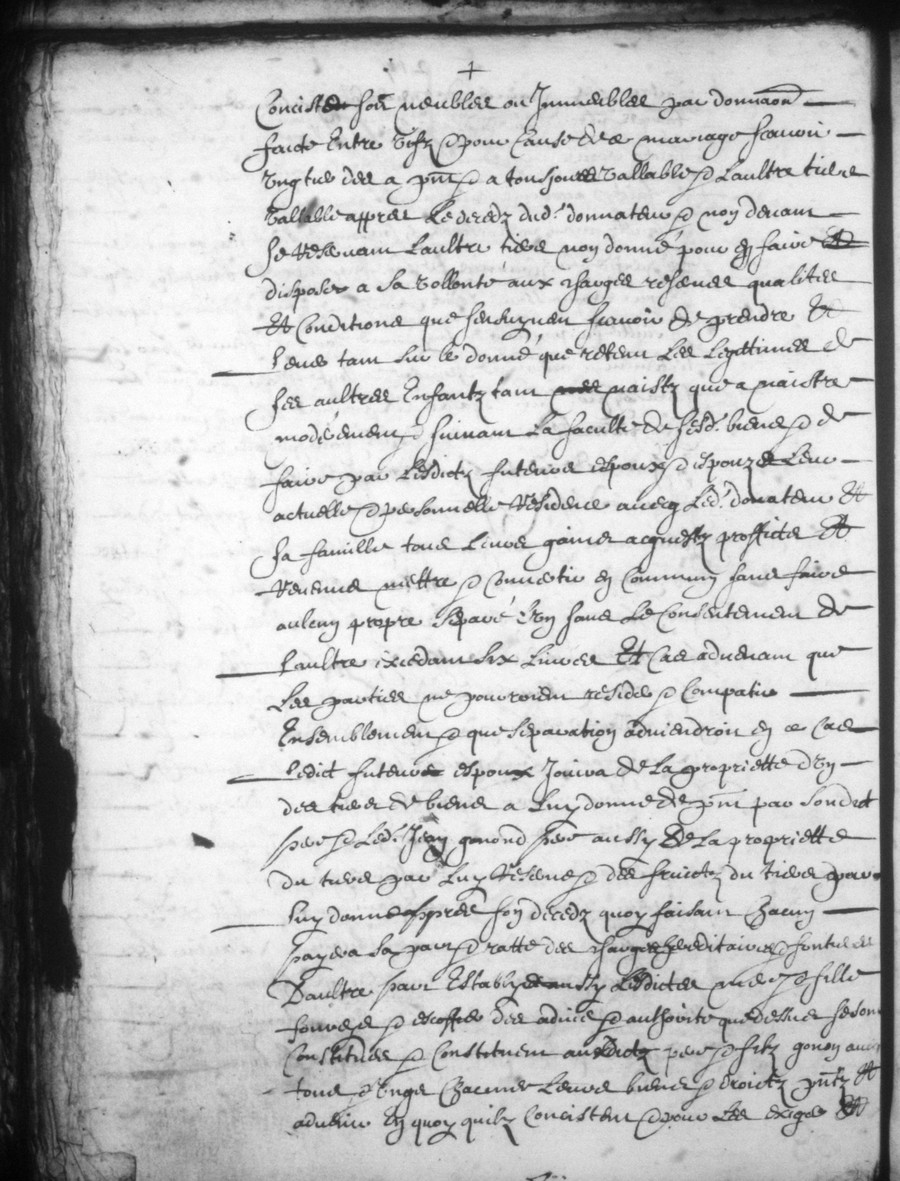 +
Concistent soit meubles ou Immeubles par donnaon
faicte Entre vifz & pour Cause de mariage scavoir
Ung tiers des a pnt & a tousjours vallable & Laultre tiers
vallable appres Le decedz dud. donnateur & non devant
se Reservant Laultre tiers non donné pour en faire
disposer a sa vollonté aux charges reserves qualites
Et Conditions que sensuyvent scavoir de prendre Et
lever tant sur le donné que retenu Les Legittimes de
ses aultres Enfantz tant naistz que a naistre
moderement & suivant La faculté de sesd. biens & de
faire par Lesdictz futeurs espoux & espouze Leur
actuelle & personnelle Residence avecq Led. donateur Et
sa famille tous Leurs gains acquestz proffictz Et
Revenus mettre & Convertir en Commung sans faire
aulcun propre separé L'un sans Le Consentement de
Laultre excedant six Livres Et Cas advenant que
Les parties ne pourroient resider & Compatir
Ensemblement & que separation adviendroit en ce Cas
Ledict futeur espoux Jouira de La proprietté d'un
des tiers de biens a Luy donné de pnt par sondict
pere & Led. Jean gonond pere aussy de La proprietté
du tiers par Luy Reservé & des fruictz du tiers par
Luy donné appres son decedz quoy faisant Chacun
payera sa part & ratte des charges hereditaires & fontieres
Daultre part Estably aussy Lesdictes mere & fille
& des advis & authorité que dessus se sont
Constitués & Constituent ausdictz pere & filz gonon
tous & Ungs Chacuns Leurs biens & droictz pntz Et
advenir En quoy quilz Concistent & pour Les exiger Et